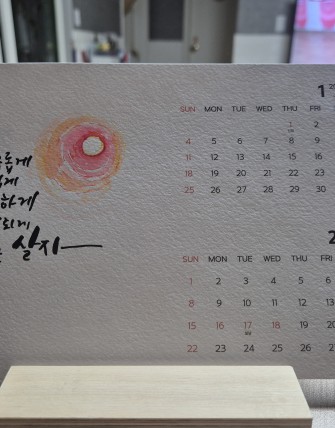 하게
되게
살자
1
SUN MON TUE WED THU FRI
1 2
4 5 6 7 8 9
11 12 13 14 15 16
18 19 20 21 22 23
25 26 27 28 29 30
2
SUN MON TUE WED THU FRI
1 2 3 4 5 6
8 9 10 11 12 13
15 16 17 18 19 20
22 23 24 25 26 27